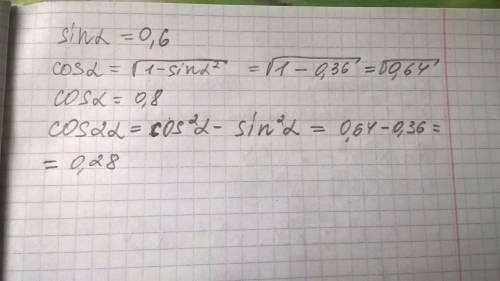 sinα = 0,6
cosα = √1-sinα² = √1-0,36 = √0,64
cosα = 0,8
cos2α = cos²α - sin²α = 0,64-0,36 =
= 0,28